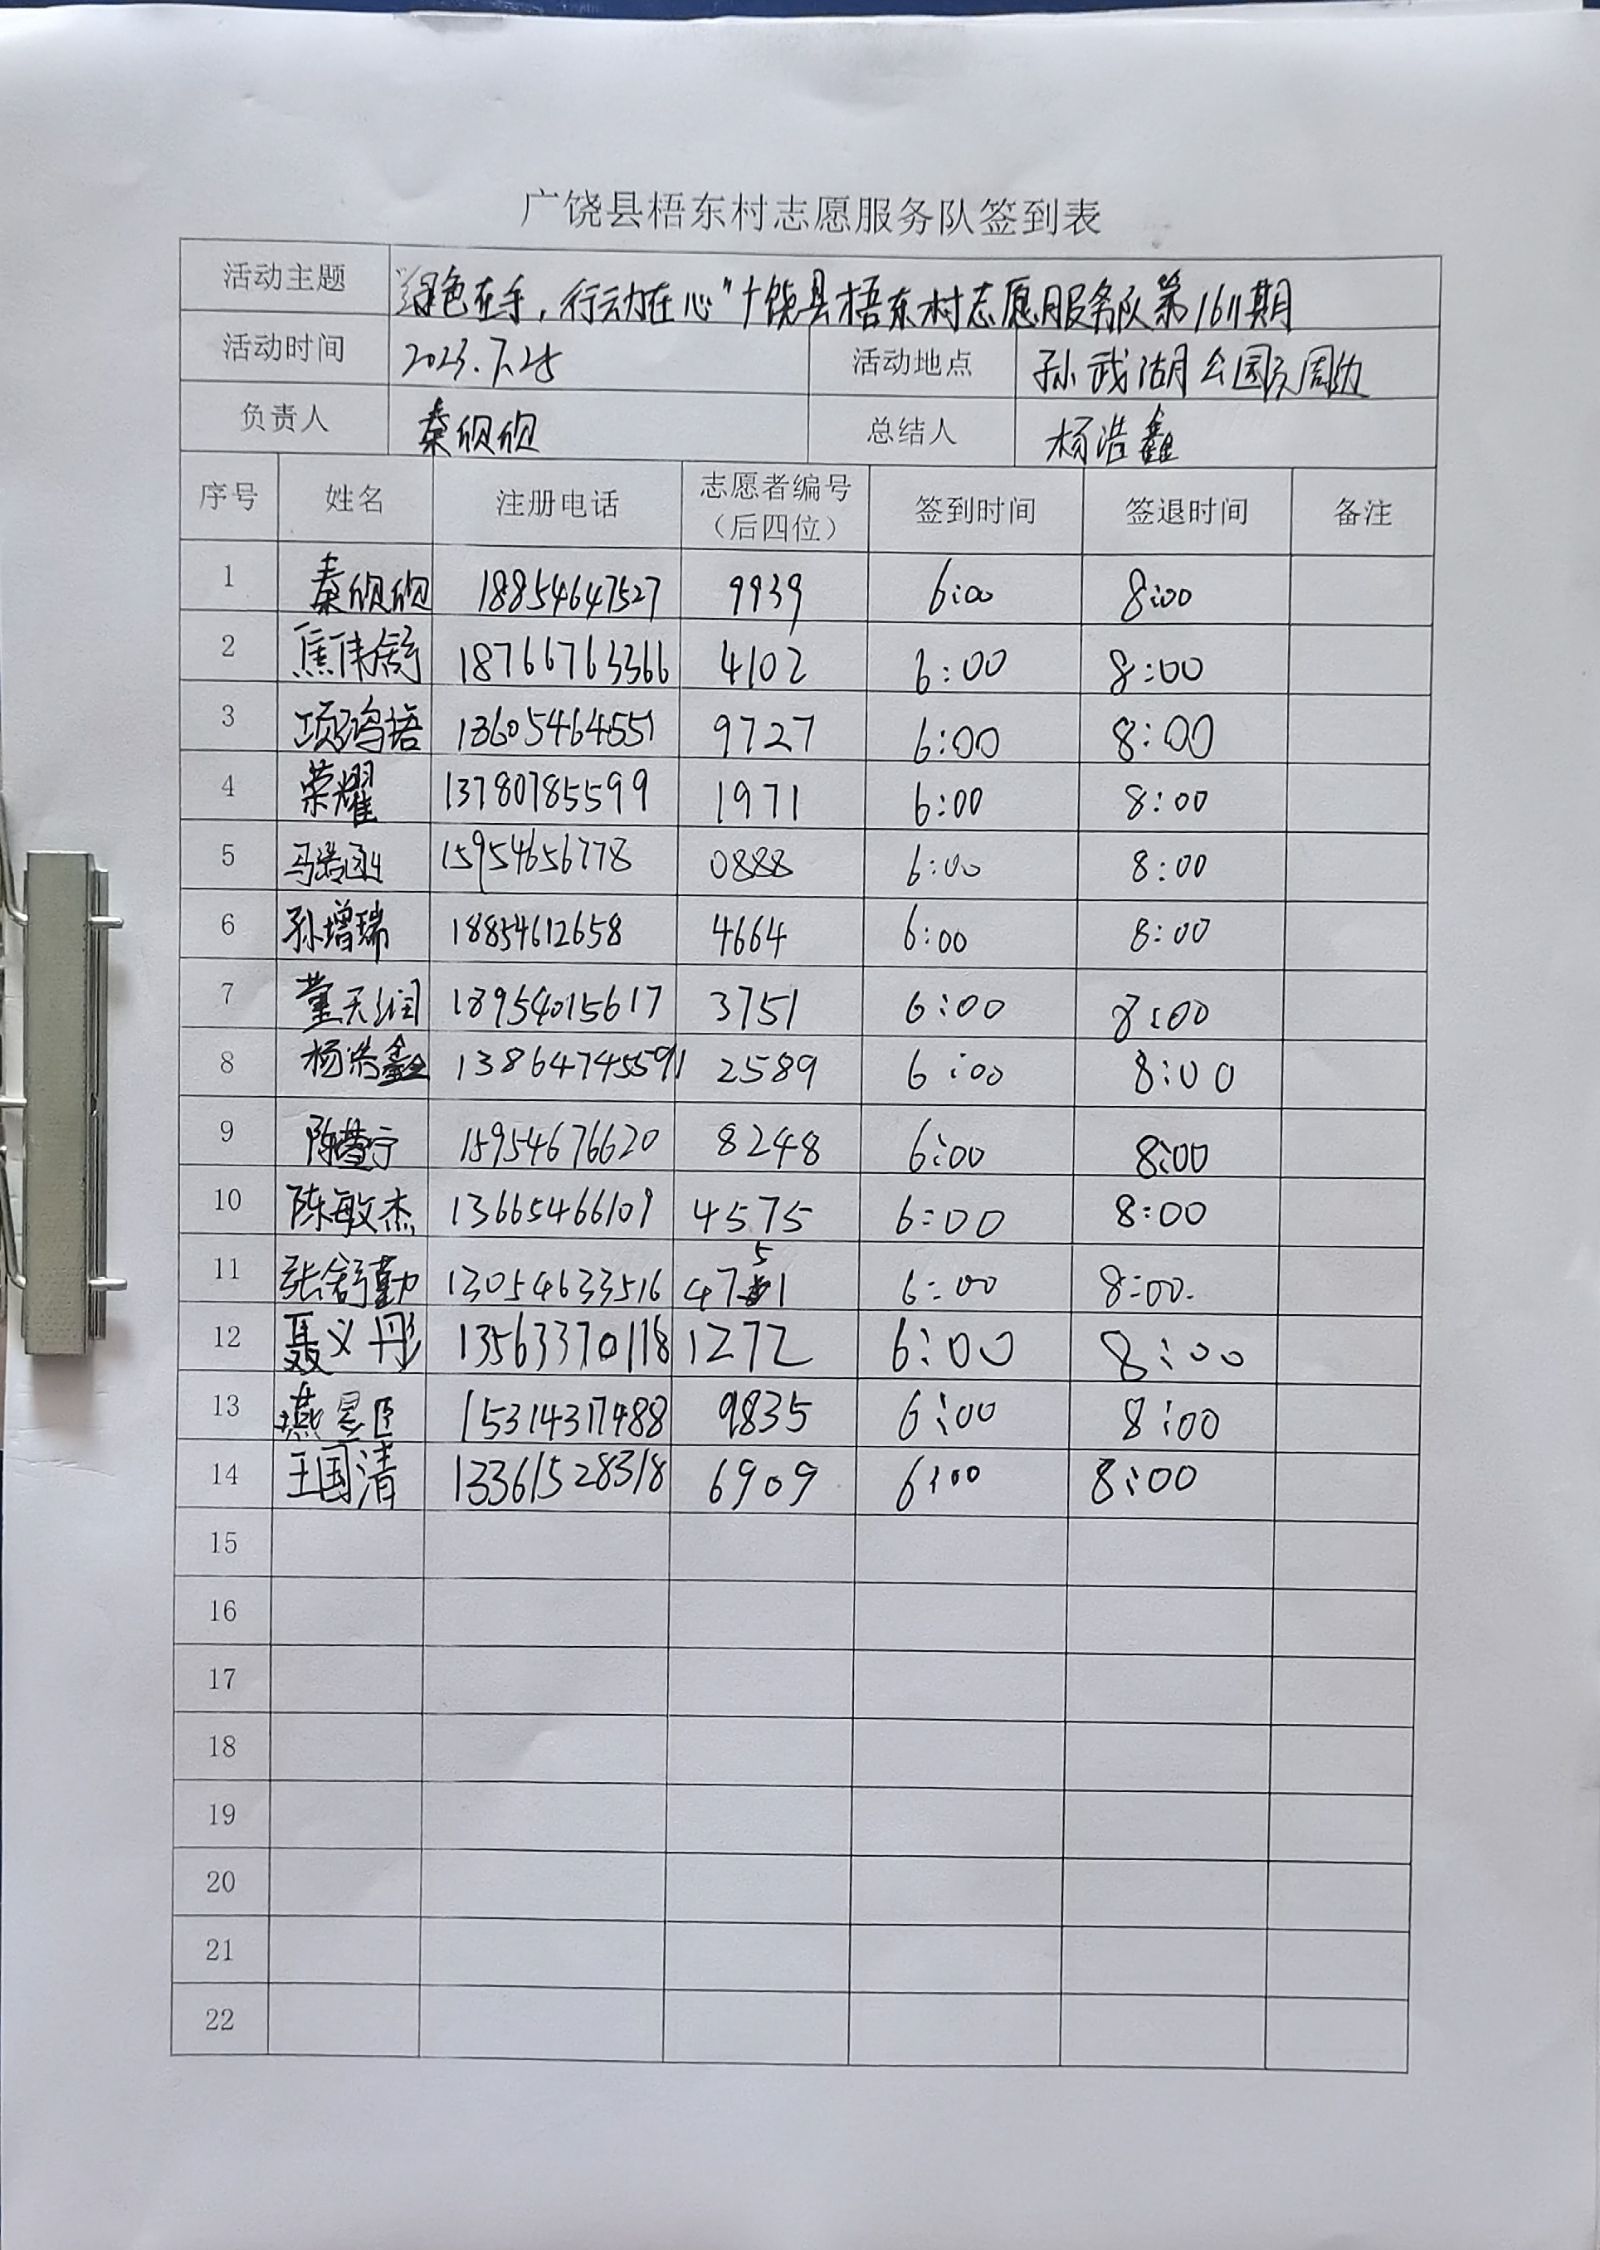 广饶县梧东村志愿服务队签到表
活动主题 “绿色在手,行动在心”广饶县梧东村志愿服务队第1611期
活动时间 2023.7.25 活动地点 孙武湖公园及周边
负责人 秦砚砚 总结人 杨浩鑫
序号 姓名 注册电话 志愿者编号(后四位) 签到时间 签退时间 备注
1 秦砚砚 18854647527 9939 6:00 8:00
2 焦伟舒 18766763366 4102 6:00 8:00
3 项鸿语 13605464551 9727 6:00 8:00
4 荣耀 13780785599 1971 6:00 8:00
5 马浩函 15954656778 0888 6:00 8:00
6 孙增瑞 18854612658 4664 6:00 8:00
7 董天润 18954015617 3751 6:00 8:00
8 杨浩鑫 13864745591 2589 6:00 8:00
9 陈萱宁 15954676620 8248 6:00 8:00
10 陈敏杰 13665466109 4575 6:00 8:00
11 张舒勤 13054633516 4751 6:00 8:00.
12 聂义彤 13563370118 1272 6:00 8:00
13 燕 15314317488 9835 6:00 8:00
14 王国清 13361528318 6909 6:00 8:00
15
16
17
18
19
20
21
22